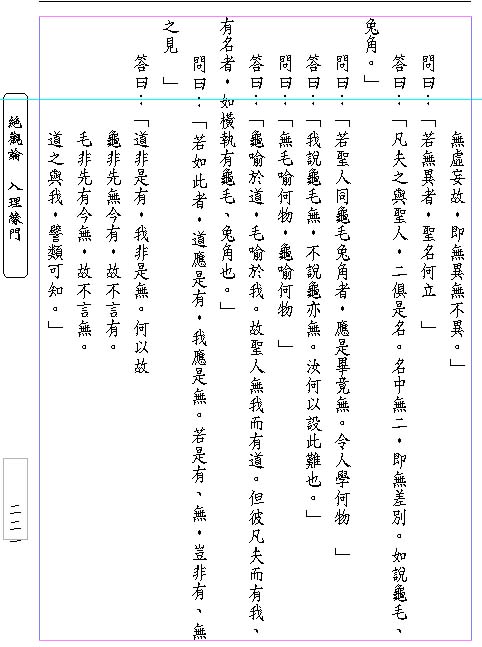 無虛妄故，即無異無不異。」
問曰：「若無異者，聖名何立 」
答曰：「凡夫之與聖人，二俱是名。名中無二，即無差別。如說龜毛、
兔角。」
問曰：「若聖人同龜毛兔角者，應是畢竟無。令人學何物 」
答曰：「我說龜毛無，不說龜亦無。汝何以設此難也。」
問曰：「無毛喻何物，龜喻何物 」
答曰：「龜喻於道，毛喻於我。故聖人無我而有道。但彼凡夫而有我、
有名者，如橫執有龜毛、兔角也。」
問曰：「若如此者，道應是有，我應是無。若是有、無，豈非有、無
之見 」
答曰：「道非是有，我非是無。何以故
龜非先無今有，故不言有。
毛非先有今無，故不言無。
道之與我，譬類可知。」
絕觀論 入理緣門
二二一